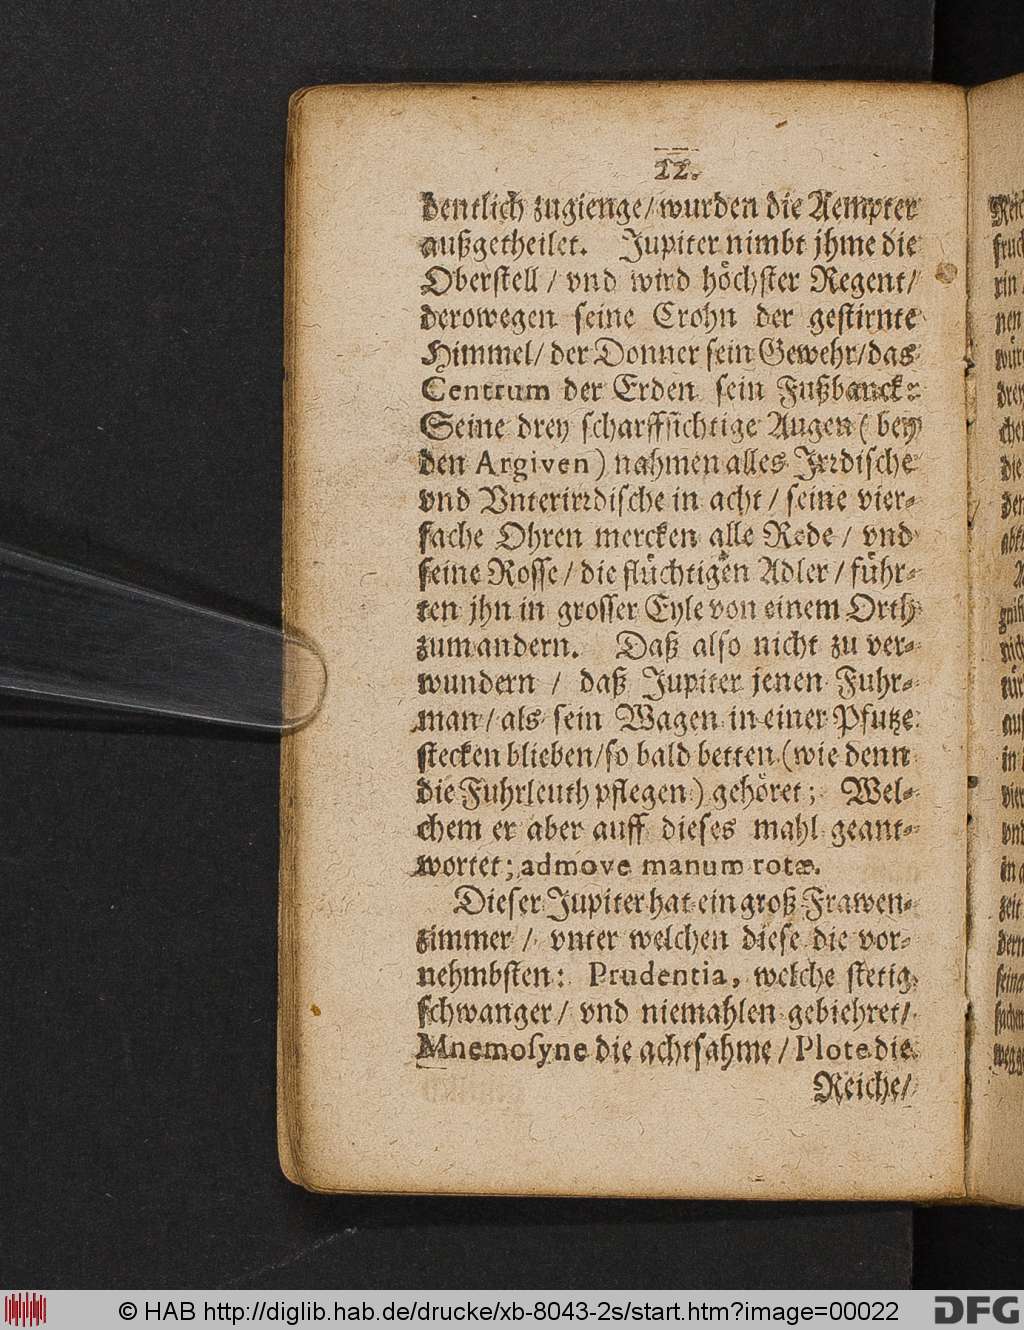 12.
dentlich zugienge/ wurden die Aempter
außgetheilet. Jupiter nimbt jhme die
Oberstell / vnd wird höchster Regent/
derowegen seine Crohn der gestirnte
Himmel/ der Donner sein Gewehr/ das
Centrum der Erden sein Fußbanck:
Seine drey scharffsichtige Augen ( bey
den Argiven ) nahmen alles Jrrdische
vnd Vnterirrdische in acht / seine vier-
fache Ohren mercken alle Rede / vnd
seine Rosse / die flüchtigen Adler / führ-
ten jhn in grosser Eyle von einem Orth
zum andern. Daß also nicht zu ver-
wundern / daß Jupiter jenen Fuhr-
man / als sein Wagen in einer Pfutze
stecken blieben/so bald betten (wie denn
die Fuhrleuth pflegen ) gehöret; Wel-
chem er aber auff dieses mahl geant-
wortet; admove manum rotæ.
Dieser Jupiter hat ein groß Frawen-
zimmer / vnter welchen diese die vor-
nehmbsten: Prudentia, welche stetig
schwanger / vnd niemahlen gebiehret/
Mnemosyne die achtsahme / Plote die
Reiche/
© HAB http://diglib.hab.de/drucke/xb-8043-2s/start.htm?image=00022
DFG